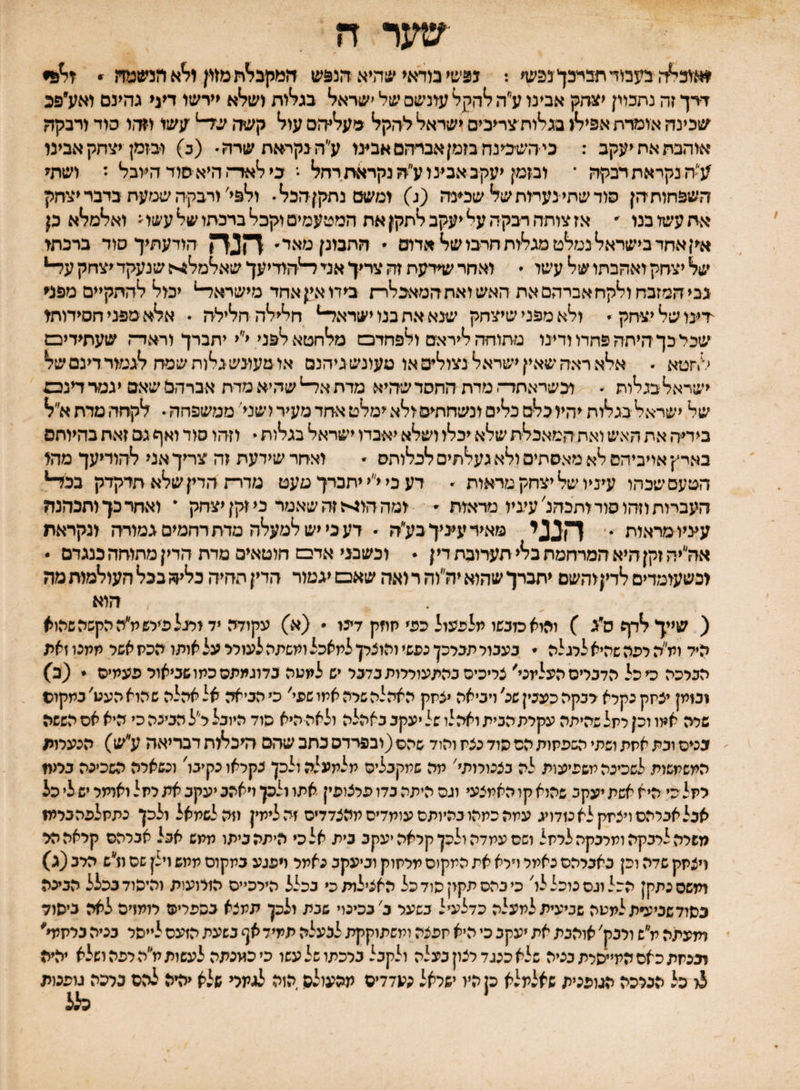 שער ה
ואוכלה בעבור תברכך נפשי : נפשי בודאי שהיא הנפש המקבלת מזון ולא הנשמה • ולפי
דרך זה נתכוין יצחק אבינו ע"ה להקל עונשם של ישראל בגלות ושלא יירשו דיני גהינם ואע"פכ
שכינה אומרת אפילו בגלות צריכים ישראל להקל מעליהם עול קשה של עשו וזהו סוד ורבקה
אוהבת את יעקב : כי השכינה בזמן אברהם אבינו ע"ה נקראת שרה • (ב) ובזמן יצחק אבינו
ע"ה נקראת רבקה • ובזמן יעקב אבינו ע"ה נקראת רחל : כי לאה היא סוד היובל : ושתי
השפחות הן סוד שתי נערות של שכינה (ג) ומשם נתקן הכל • ולפי' ורבקה שמעת בדבר יצחק
את עשו בנו • אז צותה רבקה על יעקב לתקן את המטעמים וקבל ברכתו של עשו : ואלמלא כן
אין אחד בישראל נמלט מגלות חרבו של אדום • התבונן מאד • הנה הודעתיך סוד ברכתו
של יצחק ואהבתו של עשו • ואחר שידעת זה צריך אני להודיעך שאלמלא שנעקד יצחק על
גבי המזבח ולקח אברהם את האש ואת המאכלת בידו אין אחד מישראל יכול להתקיים מפני
דינו של יצחק • ולא מפני שיצחק שנא את בנו ישראל חלילה חלילה • אלא מפני חסידותו
שכל כך היתה פחדו ודינו מתוחה ליראם ולפחדם מלחטא לפני י"י יתברך וראה שעתידים
לחטא • אלא ראה שאין ישראל נצולים או מעונש גיהנם או מעונש גלות שמח לגמור דינם של
ישראל בגלות • וכשראתה מדת החסד שהיא מדת אל שהיא מדת אברהם שאם יגמר דינם
של ישראל בגלות יהיו כלם כלים ונשחתים ולא ימלט אחד מעיר ושני' ממשפחה • לקחה מדת א"ל
בידיה את האש ואת המאכלת שלא יכלו ושלא יאבדו ישראל בגלות • וזהו סוד ואף גם זאת בהיותם
בארץ אויביהם לא מאסתים ולא געלתים לכלותם • ואחר שידעת זה צריך אני להודיעך מהו
הטעם שכהו עיניו של יצחק מראות • דע כי י"י יתברך מעט מדת הדין שלא תדקדק בכל
העברות וזהו סוד ותכהנ' עיניו מראות • ומה הוא זה שאמר כי זקן יצחק • ואחר כך ותכהנה
עיניו מראות • הנני מאיר עיניך בע"ה • דע כי יש למעלה מדת רחמים גמורה ונקראת
אה"יה זקן היא המרחמת בלי תערובת דין • וכשבני אדם חוטאים מדת הדין מתוחה כנגדם •
וכשעומדים לדין והשם יתברך שהוא יה"וה רואה שאם יגמור הדין תהיה כליה בכל העולמות מה
הוא
( שייך לדף ס"ג ) והוא כובשו מלפעול כפי חוזק דינו • (א) עקודה יד ורגל פירש מ"ה הקשה שהוא
היד ומ"ה רפה שהיא לרגלה • בעבור תברכך נפשי והוצרך למאכל ומשתה לעורר על אותו הכח אשר ממנו זאת
הברכה כי כל הדברים העליוני' צריכים בהתעוררות בדבר יש למטה בדוגמתם כמו שביאור פעמים • (ב)
ובזמן יצחק נקרא רבקה כענין שנ' ויביאה יצחק האהלה שרה אמו שפי' כי הביאה אל אהלה שהוא העט' במקום
שרה אמו וכן רחל שהיתה עקרת הבית ואהלו של יעקב באהלה ולאה היא סוד היובל ר"ל הבינה כי היא אם הששה
בנים ובת אחת ושתי השפחות הם סוד נצח והוד שהם (ובפרדס כתב שהם היכלות דבריאה ע"ש) הנערות
המשמשות לשכינה ומשפיעות לה בצנורותי' מה שמקבלים מלמעלה ולכך נקראו נקיבו' ונשארה השכינה ברמז
רחל כי היא אשת יעקב שהוא קו האמצעי וגם היתה בדו פרצופין אתו ולכך ויאהב יעקב את רחל ואומר יש לי כל
אבל אברהם ויצחק לא נזדווג עמה כמהו בהיותם עומדים מהצדדים זה לימין וזה לשמאל ולכך נתחלפה ברמז
משרה לרבקה ומרבקה לרחל ושם עמדה ולכך קראה יעקב בית אל כי היתה ביתו ממש אבל אברהם קראה הר
ויצחק שדה וכן באברהם נאמר וירא את המקום מרחוק וביעקב נאמר ויפגע במקום ממש וילן שם וז"ש הרב (ג)
ומשם נתקן הכל וגם נוכל לו' כי בהם תקון סוד כל האצילות כי בכלל הירכיים הזרועות והיסוד בכלל הבינה
בסוד שביעית למטה שביעית למעלה כדלעיל בשער ב' בכינוי שבת ולכך תמצא בספרים רומזים לאה ביסוד
ומעתה מ"ש ורבק' אוהבת את יעקב כי היא חפצה ומשתוקקת לבעלה תמיד אף בשעת הזעם לייסר בניה ברחמי'
ובנחת כאם המייסרת בניה שלא כנגד רצון בעלה ולקבל ברכתו של עשו כי כוונתה לעשות מ"ה רפה ושלא יהיה
לו כל הברכה הגופנית שאלמלא כן היו ישראל נעדדים מהעולם הזה לגמרי שלא יהיה להם ברכה גופנות
כלל